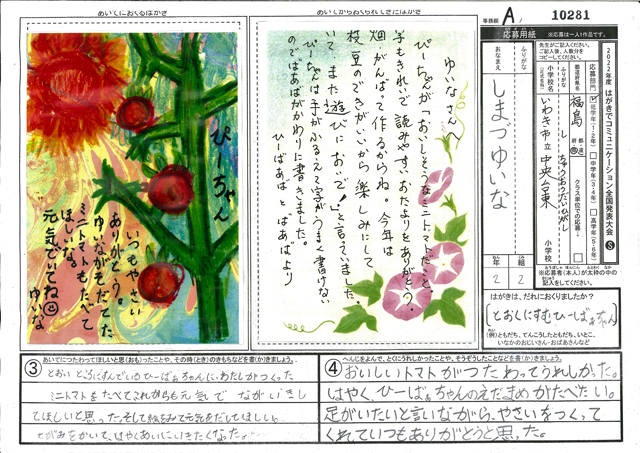 あいてにおくるはがき
あいてからおくられてきたはがき
事務局 A / 10281
応募用紙
※応募は一人1作品です。
先生がご記入ください。
ご記入後、人数分を
コピーしてください。
2022年度 はがきでコミュニケーション全国発表大会 S
応募部門
低学年(1・2年)
中学年(3・4年)
高学年(5・6年)
都道府県名
福島
クラス単位での応募
小学校名
(正式名称)
ふりがな
いわき市立 中央台東
小学校
ふりがな
おなまえ
しまづゆいな
2 年
2 組
※応募者(本人)が太枠の中の
記入をしてください。
はがきは、だれにおくりましたか?
とおくにすむひーばぁちゃん
(例)ともだち、てんこうしたともだち、いとこ、
いなかのおじいさん・おばあさんなど
ぴーちゃん
いつもやさい
ありがとう。
ゆいながそだてた
ミニトマトもたべて
ほしいな。
元気でいてね
ゆいな
ゆいなさんへ
ぴーちゃんが「おいしそうなミニトマトだこと。
字もきれいで読みやすいおたよりをありがとう。
畑がんばって作るからね。今年は
枝豆のできがいいから楽しみにして
いて。また遊びにおいで!」と言えていました。
ぴーちゃんは手がふるえて字がうまく書けない
のでばあばがかわりに書きました。
ひーばあばとばあばより
③ あいてにつたわってほしいと思(おも)ったことや、その時(とき)のきもちなどを書(か)きましょう。
とおいところにすんでいるひーばぁちゃんに、わたしがつくった
ミニトマトをたべてこれからも元気でながいきし
てほしいと思った。そして絵をみて元気をだしてほしい。
てがみをかいて、はやくあいにいきたくなった。
④ へんじをよんで、とくにうれしかったことや、そうぞうしたことなどを書(か)きましょう。
おいしいトマトがつたわってうれしかった。
はやく、ひーばぁちゃんのえだまめがたべたい。
足がいたいと言いながら、やさいをつくって
くれていつもありがとうと思った。